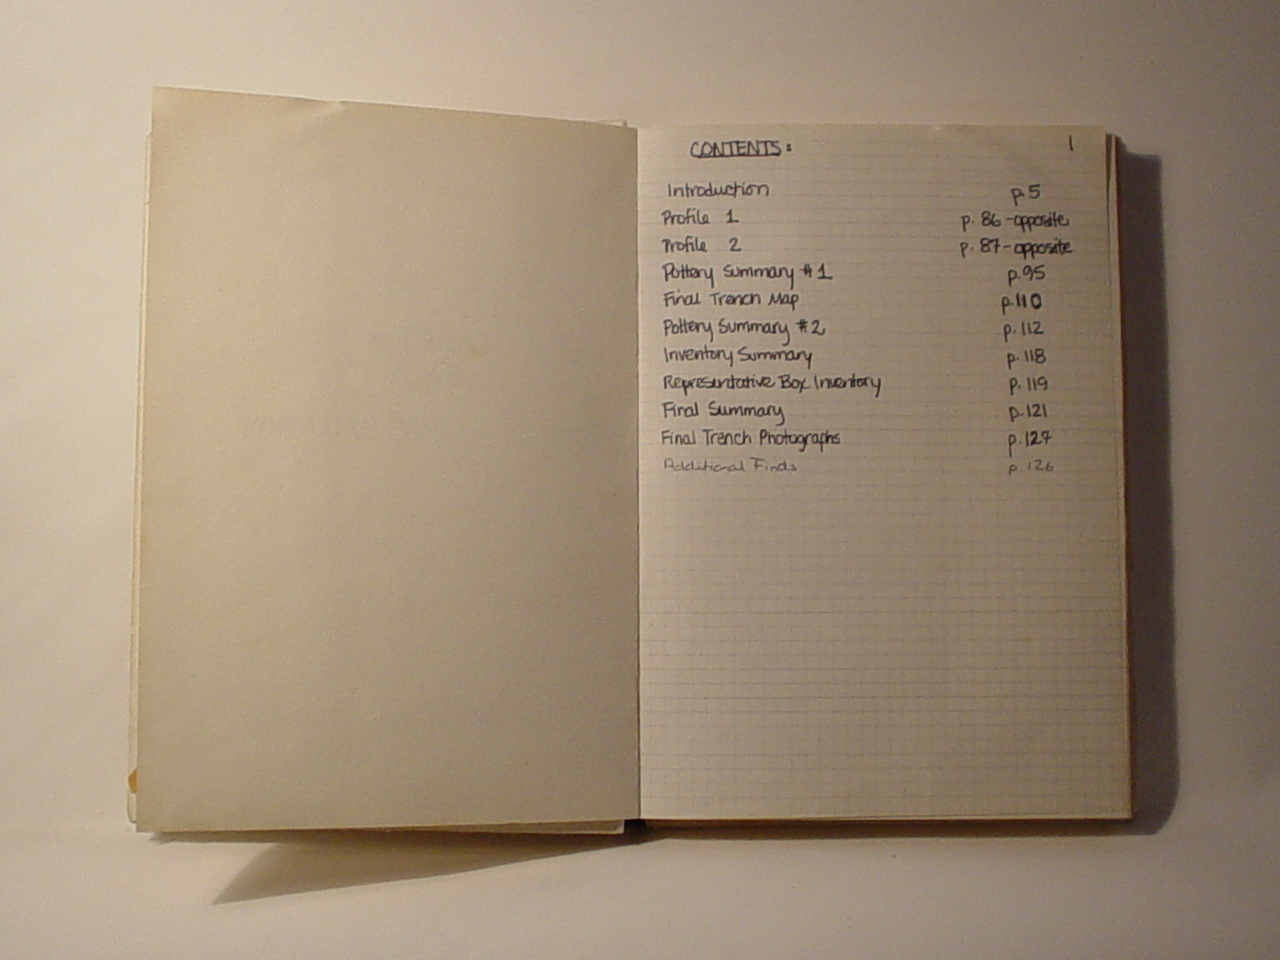 CONTENTS: 1
Introduction p.5
Profile 1 p. 86-opposite
Profile 2 p. 87-opposite
Pottery Summary #1 p.95
Final Trench Map p.110
Pottery Summary #2 p.112
Inventory Summary p.118
Representative Box Inventory p.119
Final Summary p.121
Final Trench Photographs p.127
Additional Finds p.126